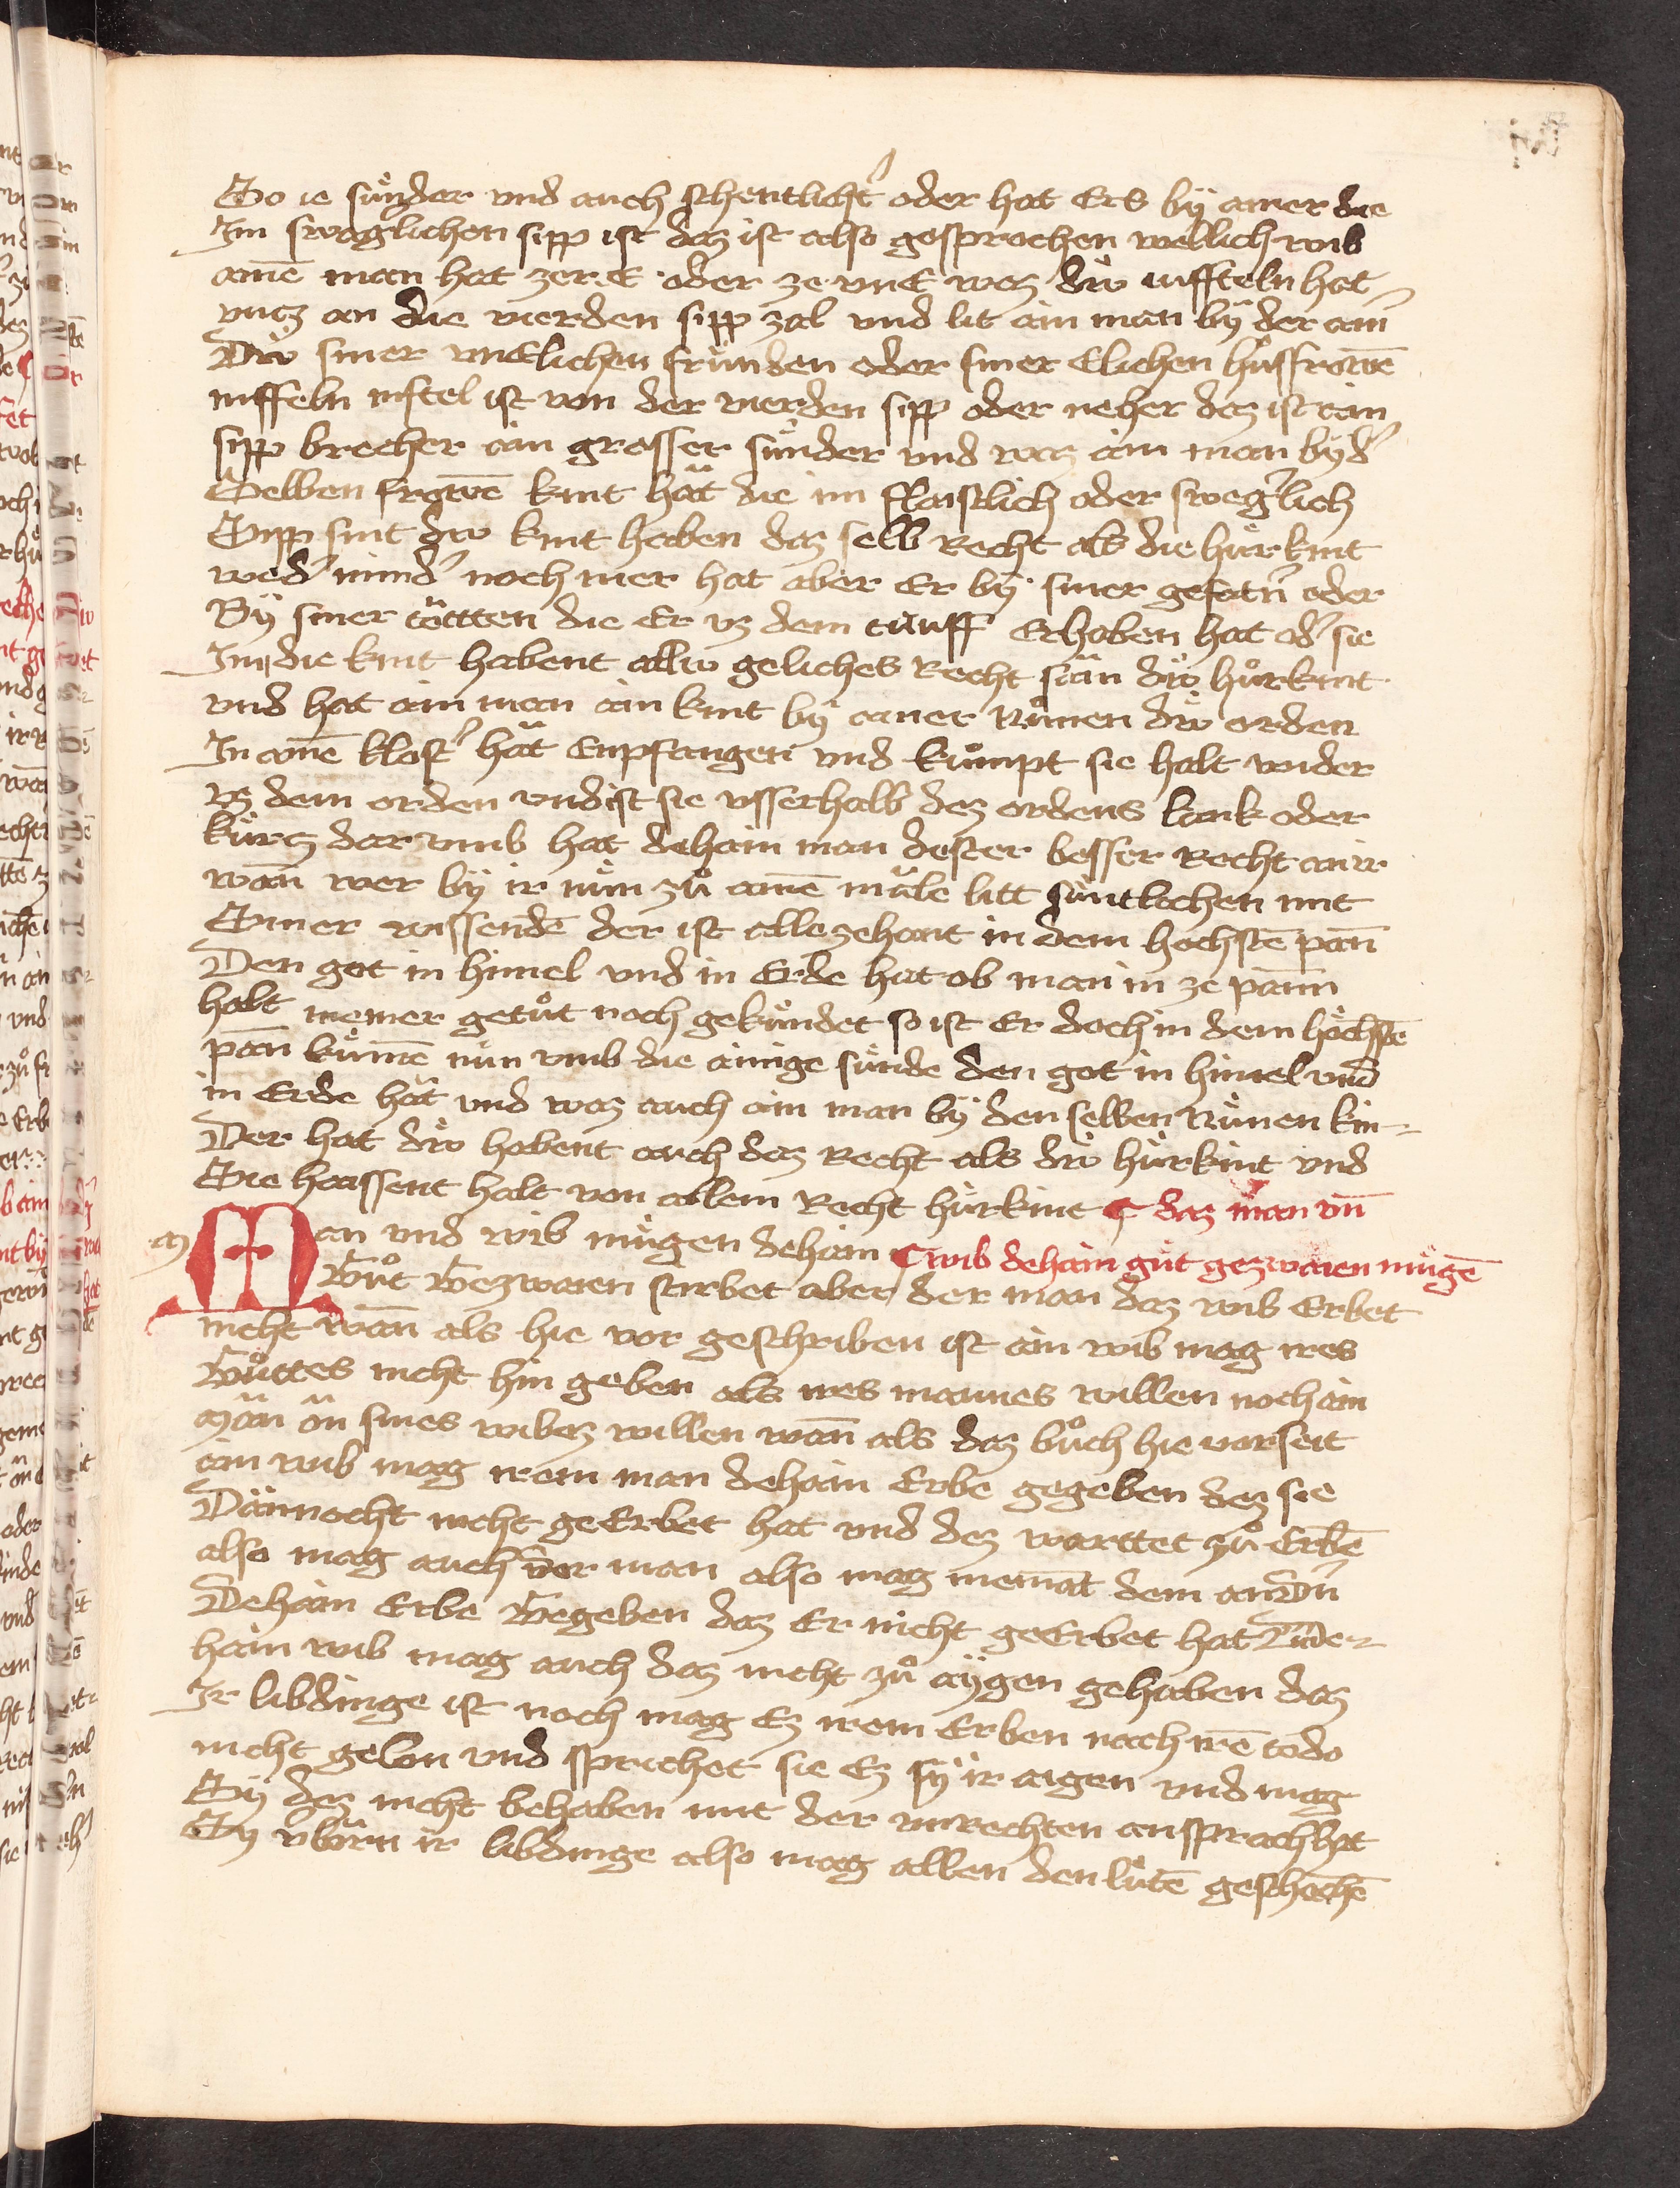 So ie sünder vnd auch schentlicher oder hat Ers bÿ ainer die
Im swaglichen sipp ist daz ist also gesprochen wellich wib
aīnē man hat zer E oder ze vnE waz dw̍ niffteln hat
vntz an die vierden sipp zal vnd lit ain man bÿ der ain̄
Dw̍ siner vnElichen frunden oder siner Elichen hussfrowē
niffteln niftel ist von der vierden sipp oder neher daz ist ain
sipp brecher ain grosser sünder vnd waz ain man bÿ d'
Selben frowē kint hät die im flaischlich oder sweg'lich
Sipp sint dw̍ kint haben daz selb Recht als die hůrkint
wed' mind' noch mer hat aber Er bÿ siner gefatrin oder
Bÿ siner töttten die Er vz dem tauff Erhaben hat od' sie
In die kint habent allw geliches Recht sam dw̍ hůrkint
vnd hat ain man ain kint bÿ ainer Nunnen dw̍ orden
In ainē klost' hät Enpfangen vnd kůmpt sie halt wider
vz dem orden vnd ist sie vsserhalb dez ordens lank oder
kurtz dar vmb hat dehain man dester besser Recht an ir
wan̄ wer bÿ ir nůn zů ainē māle litt süntlechen mit
Einer wissendē der ist alle zehant in dem hochstē pan̄
Den got in himel vnd in Erde hat ob man in ze pann
halt niemer getůt noch gekündet so ist Er doch in dem höchstē
pan̄ kumē nun vmb die ainige sünde den got in himel vnd
in Erde hät vnd waz auch ain man bÿ den selben Nunnen kin-
Der hat dw̍ habent auch daz Recht als dw̍ hůrkint vnd
Sie haissent halt von allem Recht hůrkint ¶ daz man vn̄
Man vnd wib mügen dehain ¶ wib dehain gůt gezwaien mügē
Gůt Gezwaien stirbet aber der man daz wib Erbet
nicht wan̄ als hie vor geschriben ist ain wib mag ires
Gůttes nicht hin geben als ires mannes willen noch ain
Man ān sines wibez willen wan̄ als daz bůch hie vor seit
ain wib mag irem man dehain Erbe gegeben dez sie
Dannocht nicht geErbet hat vnd dez warttet zů Erbē
also mag auch der man also mag niemāt dem andn̄
Dehain Erbe Gegeben daz Er nicht geErbet hat Ain de-
hain wib mag auch daz nicht zů aÿgen gehaben daz
Ir libdinge ist noch mag Ez irem Erben nach irē tode
nicht gelan vnd sprichet sie Ez sÿ ir aigen vnd mag
Sÿ dez nicht behaben mit der vnrechten ansprach hat
Sÿ v'lorn ir libdinge also mag allen den lütē geschechē